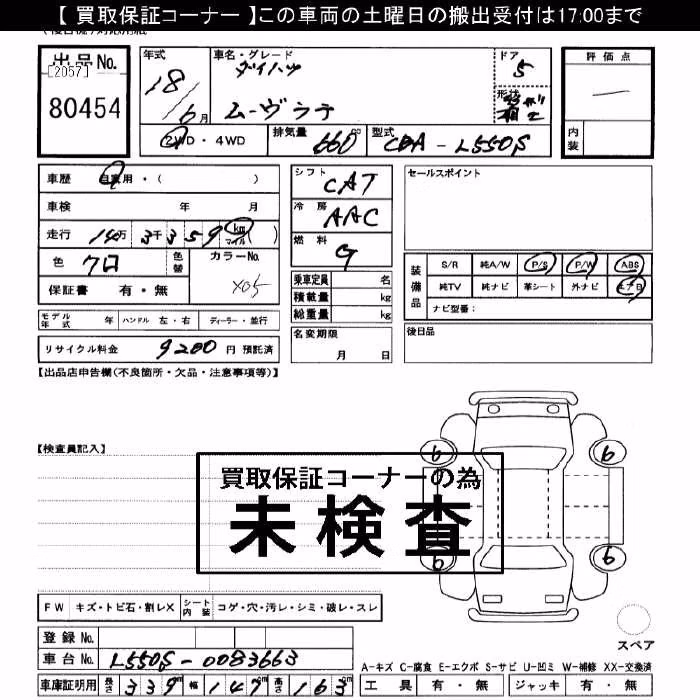 【 買取保証コーナー 】この車両の土曜日の搬出受付は17:00まで
出品No.
[2057]
80454
年式
18/6月
車名・グレード
ダイハツ
ムーヴラテ
ドア
5
形状
評価点
内装
2WD・4WD
排気量 660 cc
型式 CBA - L550S
車歴 自家用・( )
車検 年 月
走行 14万3千359 km マイル ( )
色 クロ 色替
カラーNo.
X05
保証書 有・無
シフト CAT
冷房 AAC
燃料 G
乗車定員 名
積載量 kg
総重量 kg
セールスポイント
装備品
S/R 純A/W P/S P/W ABS
純TV 純ナビ 革シート 外ナビ エアB
ナビ型番：
モデル年式 年 ハンドル 左・右 ディーラー・並行
リサイクル料金 9200 円 預託済
名変期限
月 日
後日品
【出品店申告欄(不良箇所・欠品・注意事項等)】
【検査員記入】
6 6
6 6
買取保証コーナーの為
未検査
FW キズ・トビ石・割レX シート内装 コゲ・穴・汚レ・シミ・破レ・スレ
スペア
登録No.
車台No. L550S-0083663
A-キズ C-腐食 E-エクボ S-サビ U-凹ミ W-補修 XX-交換済
車庫証明用 長さ 339 cm 幅 147 cm 高さ 163 cm
工具 有・無 ジャッキ 有・無